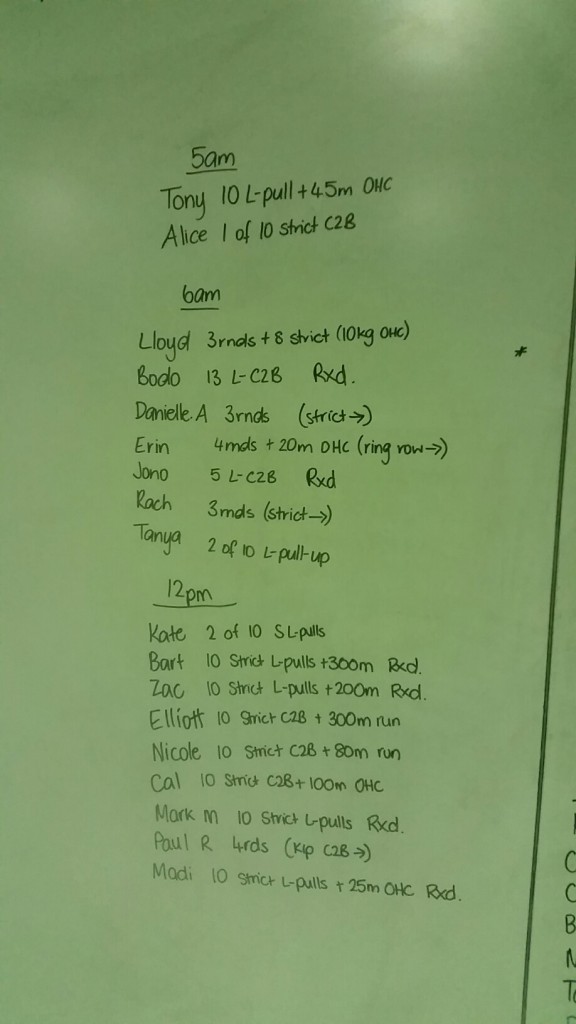 5am
Tony 10 L-pull + 45m OHC
Alice 1 of 10 strict C2B
6am
Lloyd 3rnds + 8 strict (10kg OHC)
Bodo 13 L-C2B Rxd.
Danielle.A 3rnds (strict→)
Erin 4rnds + 20m OHC (ring row→)
Jono 5 L-C2B Rxd
Rach 3rnds (strict→)
Tanya 2 of 10 L-pull-up
12pm
Kate 2 of 10 S L-pulls
Bart 10 Strict L-pulls + 300m Rxd.
Zac 10 Strict L-pulls + 200m Rxd.
Elliott 10 Strict C2B + 300m run
Nicole 10 Strict C2B + 80m run
Cal 10 Strict C2B + 100m OHC
Mark M 10 Strict L-pulls Rxd.
Paul R 4rds (Kip C2B→)
Madi 10 Strict L-pulls + 25m OHC Rxd.
*